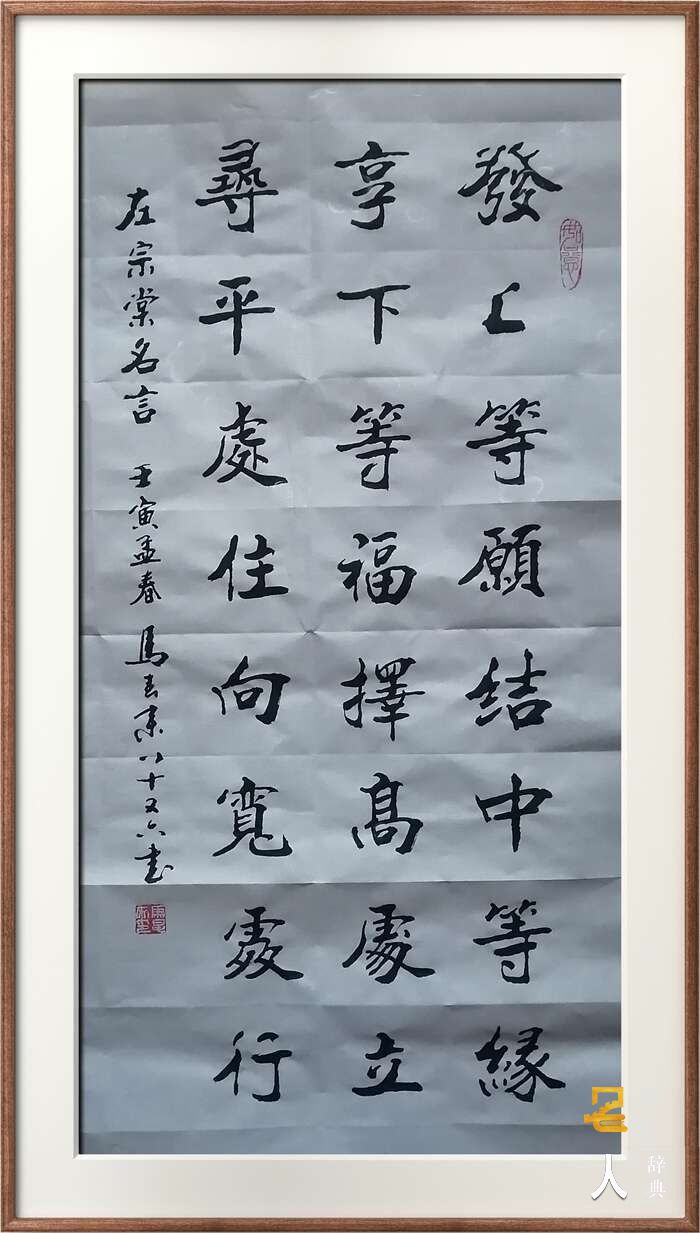 發上等願結中等緣
享下等福擇高處立
尋平處住向寬處行
左宗棠名言 壬寅孟春 馬 八十又六書
名人
辞典